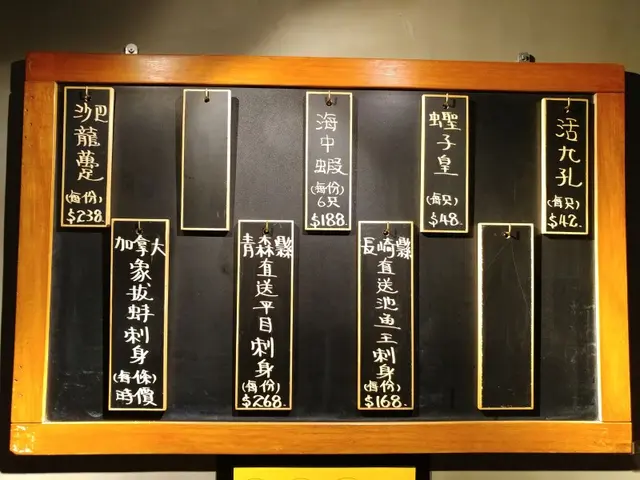 沙巴
龍躉
(每份)
$238.
海中蝦
(每份)
6只
$188.
蟶子皇
(每只)
$48.
活九孔
(每只)
$42.
加拿大
象拔蚌刺身
(每條)
時價
青森縣
直送平目刺身
(每份)
$268.
長崎縣
直送池魚王刺身
(每份)
$168.